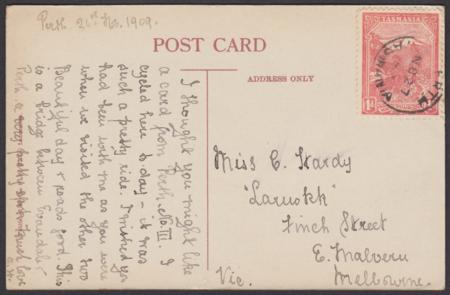 Perth. 21st Nov. 1909.
POST CARD
ADDRESS ONLY
TASMANIA
1d
I thought you might like
a card from Perth. No III. I
cycled here to-day - it was
such a pretty ride. I wished you
had been with me as you were
when we visited the other two
Beautiful day & roads good. This
is a bridge between Evandale &
Perth. a very pretty spot. Much love
Miss C. Hardy
"Larnokk"
Finch Street
E. Malvern
Melbourne.
Vic.